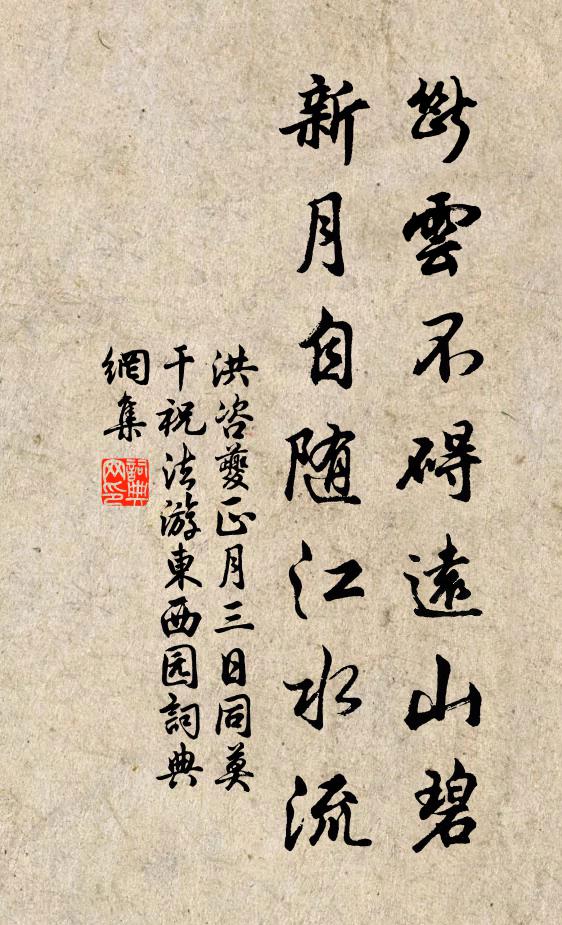 斷雲不碍遠山碧
新月自随江水流
洪咨夔正月三日同莫
干祝法游東西园詞典
網集
詞典
网印